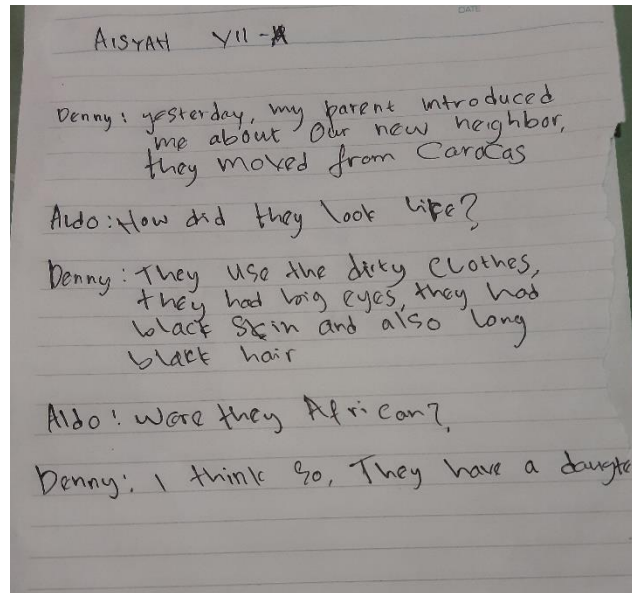 DATE
AISYAH VII-A
Denny: yesterday, my parent introduced
me about Our new neighbor,
they moved from Carocas
Aldo: How did they look like?
Denny: They use the dirty clothes,
they had big eyes, they had
black skin and also long
black hair
Aldo: Were they African?
Denny: I think So, They have a daugte